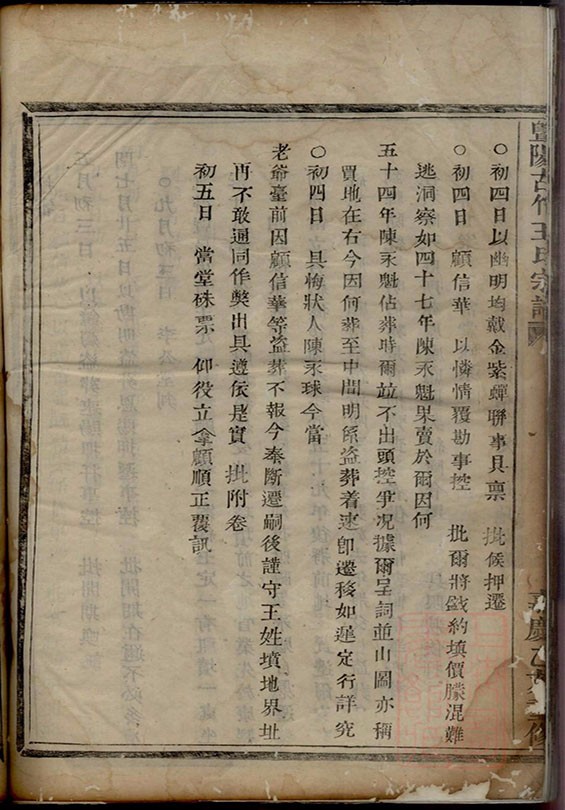 暨陽古竹王氏宗譜
○初四日以幽明均戴金紫蟬聯事具稟 批候押遷
○初四日 顧信華 以憐情覆勘事控 批爾將戤約填價朦混難
逃洞察如四十七年陳永魁果賣於爾因何
五十四年陳永魁佔葬時爾竝不出頭控爭况據爾呈詞並山圖亦稱
買地在右今因何葬至中間明係盗葬着速卽遷移如遲定行詳究
○初四日 具悔狀人陳永球今當
老爺臺前因顧信華等盗葬不報今奉斷遷嗣後謹守王姓墳地界址
再不敢通同作獘出具遵依是實 批附卷
初五日 當堂硃票 仰役立拿顧順正覆訊
慶乙